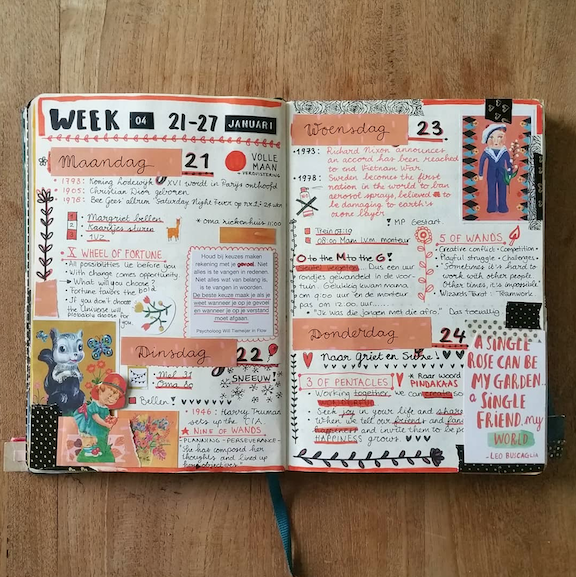 WEEK 04 21-27 JANUARI
Maandag 21
VOLLE
MAAN
+ VERDUISTERING
• 1793: Koning Lodewijk XVI wordt in Parijs onthoofd
• 1905: Christian Dior geboren
• 1978: Bee Gees album Saturday Night Fever op nr 1
1. Margriet bellen
2. Kaartjes sturen
3.
• oma ziekenhuis 11:00
X WHEEL OF FORTUNE
All possibilities lie before you
• With change comes opportunity.
• What will you choose?
• Fortune favors the bold
• If you don't choose
the Universe will
probably decide for
you
Houd bij keuzes maken
rekening met je gevoel. Niet
alles is te vangen in redenen.
Niet alles wat van belang is,
is te vangen in woorden.
De beste keuze maak je als je
weet wanneer je op je gevoel
en wanneer je op je verstand
moet afgaan.
Psycholoog Will Tiemeijer in Flow
Dinsdag 22
• Oma 80
SNEEUW
Bellen!
• 1946: Harry Truman
sets up the CIA
NINE OF WANDS
• PLANNING • PERSEVERANCE •
He has composed her
thoughts and lined up
Woensdag 23
• 1973: Richard Nixon announces
an accord has been reached
to end Vietnam War.
• 1978: Sweden becomes the first
nation in the world to ban
aerosol sprays, believed to
be damaging to earth's
ozone layer
! MP Gestart
Trein 07.19
08:00 Mam
monteur
O to the M to the G!
Sleutel vergeten. Dus een uur
rondjes gewandeld in de voor-
tuin. Gelukkig kwam mama
om 9:00 uur en de monteur
pas om 12:00 uur.....
"Je was die jongen met die afro." Das toevallig
5 OF WANDS
• Creative conflict • Competition •
Playful struggle • Challenges •
"Sometimes it is hard to
work with other people.
Other times, it is impossible"
Wizards Tarot : Teamwork
Donderdag 24
Naar Griet en Sietse!
3 OF PENTACLES
Raar woord:
PINDAKAAS
• Working together, we can create
• Seek joy in your life and share
• When we tell our friend and
and invite them to be
HAPPINESS grows.
A SINGLE
ROSE CAN BE
MY GARDEN...
a SINGLE
FRIEND, my
WORLD
- LEO BUSCAGLIA